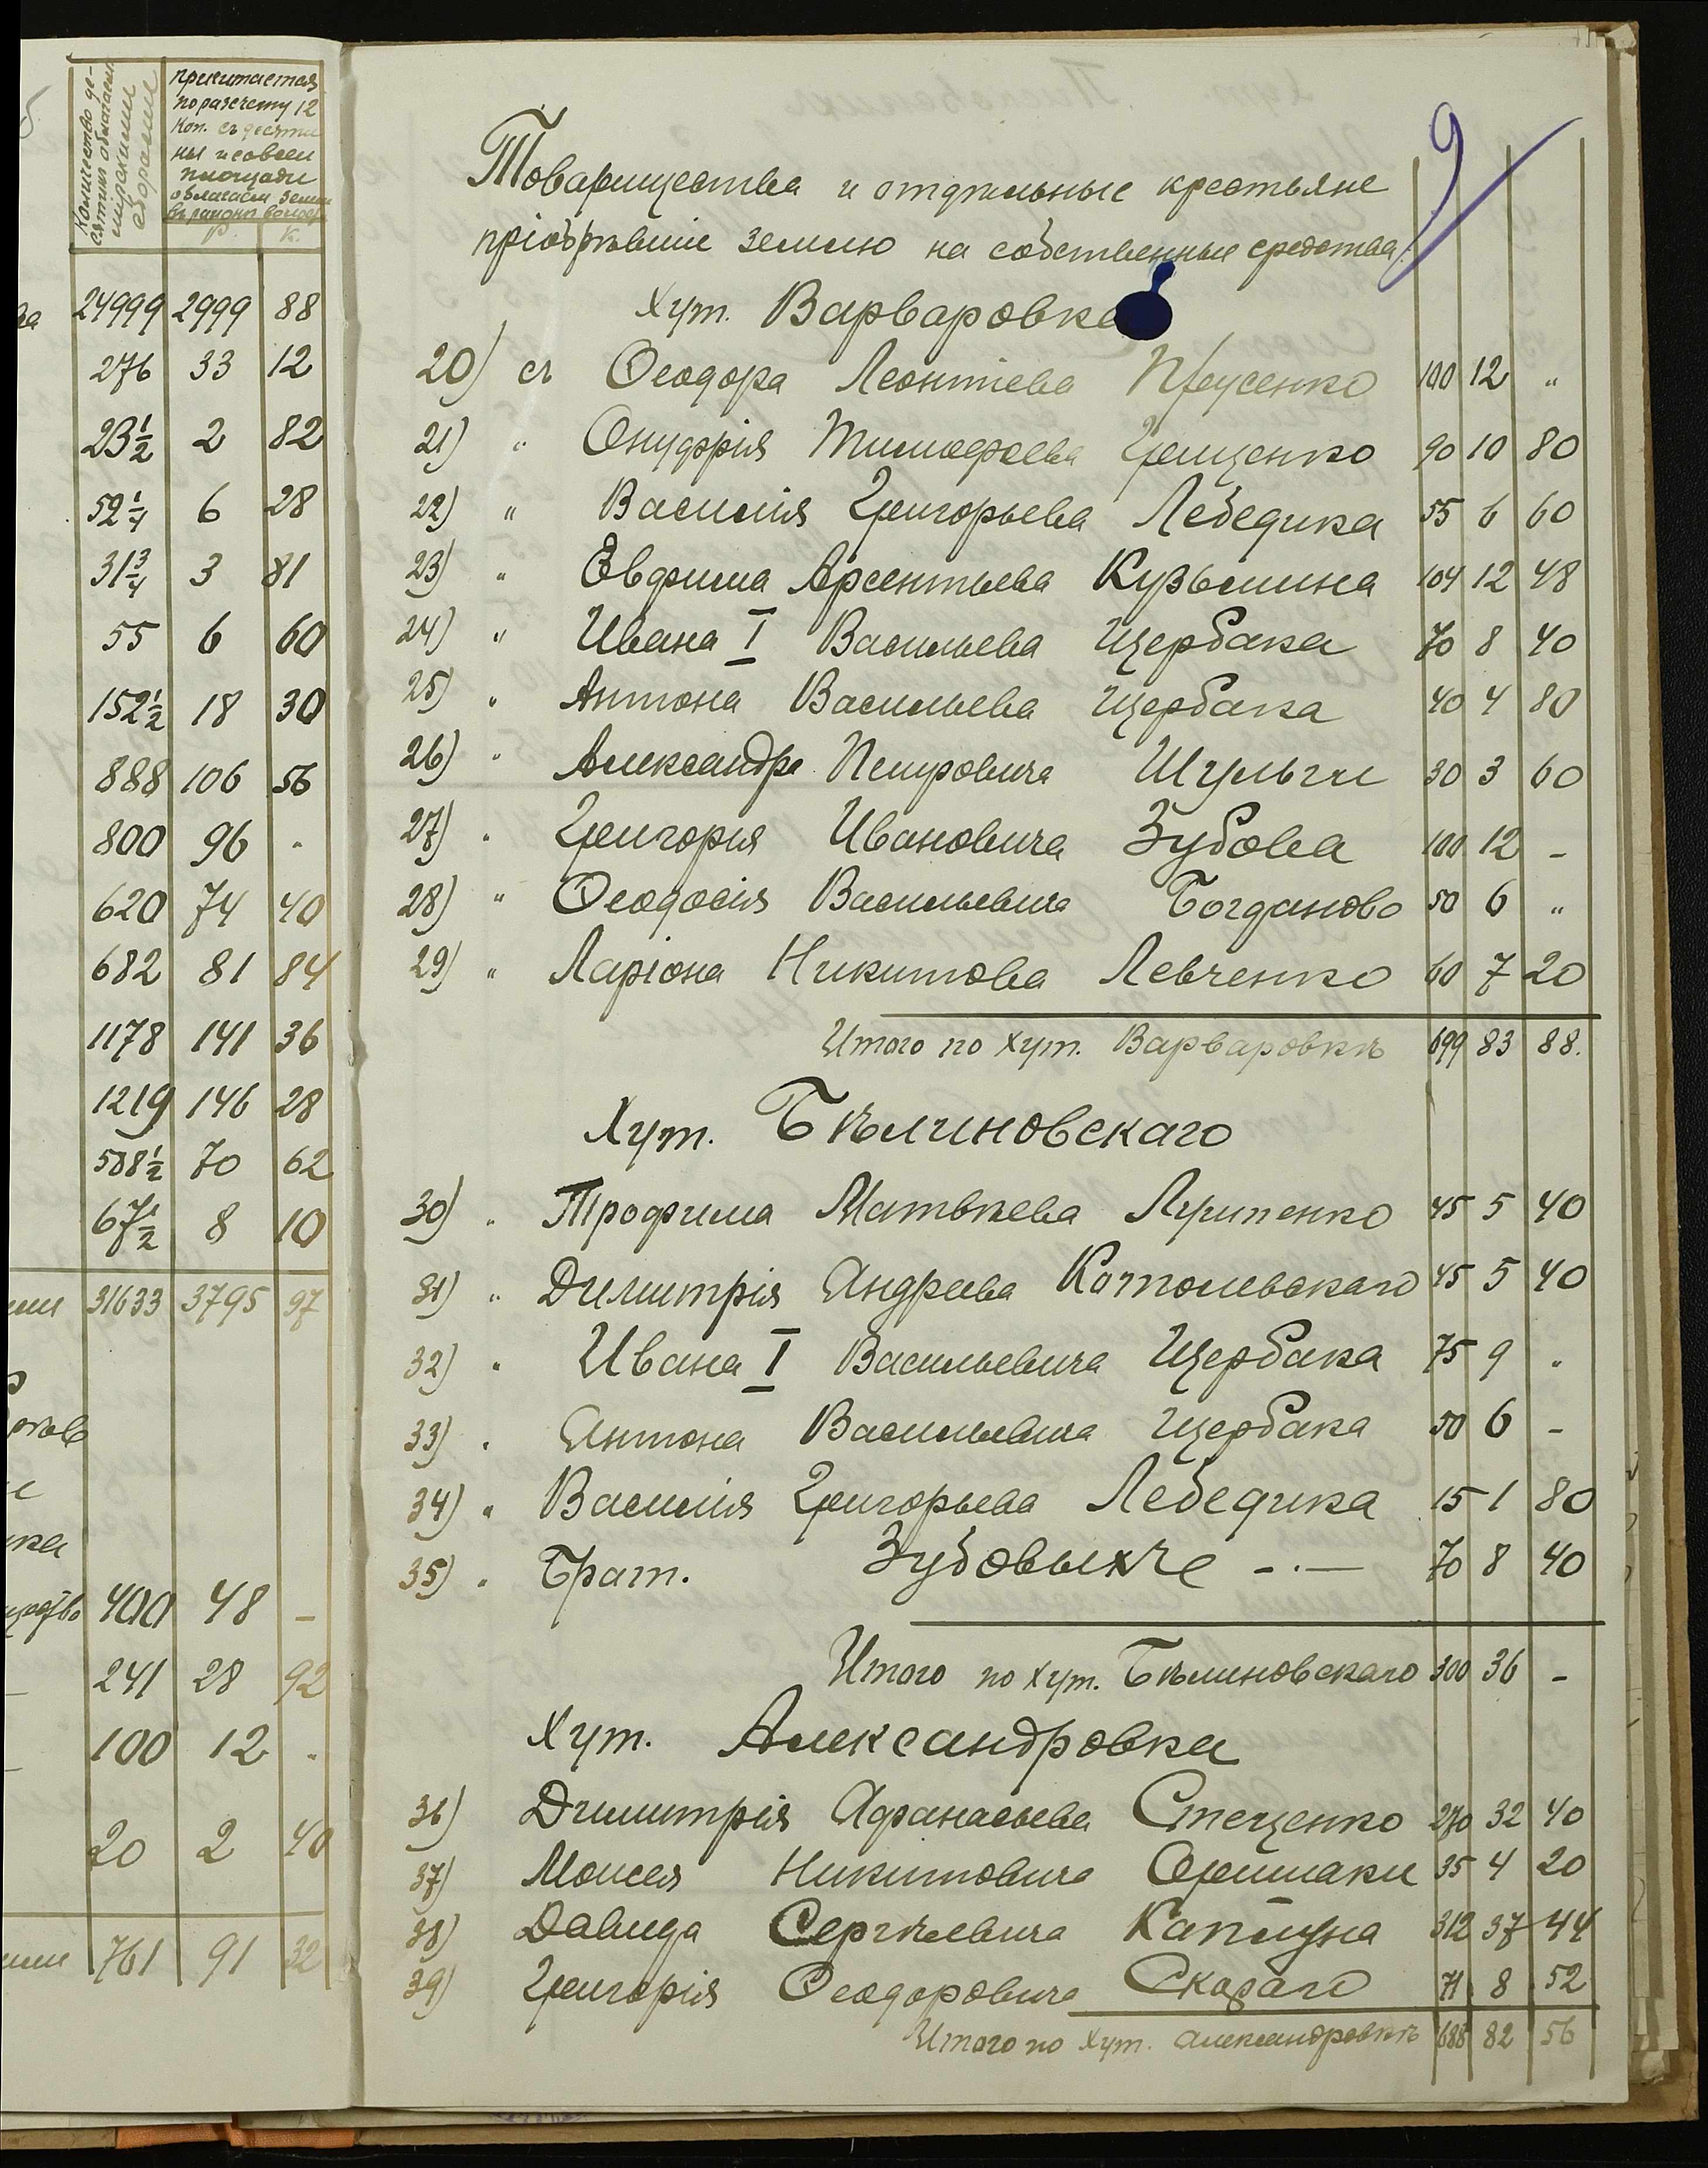 Количество де-
сятин облагаемых
мірскими
сборами
причитается
по разсчету 12
коп. съ десяти
ны и совсем
площади
облагаем земли
въ районѣ волос.
Р. К.
24999 2999 88
276 33 12
23½ 2 82
52¼ 6 28
31¾ 3 81
55 6 60
152½ 18 30
888 106 56
800 96 "
620 74 40
682 81 84
1178 141 36
1219 146 28
588½ 70 62
67½ 8 10
31633 3795 97
400 48 –
241 28 92
100 12 "
20 2 40
761 91 32
9
Товарищества и отдѣльные крестьяне
пріобрѣвшіе землю на собственныя средства.
Хут. Варваровка
20) съ Ѳеодора Леонтіева Прусенко 100 12 "
21) " Онуфрія Тимофѣева Грищенко 90 10 80
22) " Василія Григорьева Лебедика 55 6 60
23) " Евфима Арсентьева Кузьмина 104 12 48
24) " Ивана I Васильева Щербака 70 8 40
25) " Антона Васильева Щербака 40 4 80
26) " Александра Петровича Шульги 30 3 60
27) " Григорія Ивановича Зубова 100 12 –
28) " Ѳеодосія Васильевича Богданова 50 6 "
29) " Ларіона Никитова Левченко 60 7 20
Итого по хут. Варваровкѣ 699 83 88.
Хут. Бѣлиновскаго
30) " Трофима Матвѣева Лупенко 45 5 40
31) " Димитрія Андреева Котолевскаго 45 5 40
32) " Ивана I Васильевича Щербака 75 9 "
33) " Антона Васильевича Щербака 50 6 –
34) " Василія Григорьева Лебедика 15 1 80
35) " Брат. Зубовыхъ -.— 70 8 40
Итого по хут. Бѣлиновскаго 300 36 –
Хут. Александровка
36) Димитрія Афанасьева Стеценко 270 32 40
37) Моисея Никитовича 35 4 20
38) Давида Сергѣевича Каплуна 312 37 44
39) Григорія Ѳеодоровича 71 8 52
Итого по хут. Александровкѣ 688 82 56